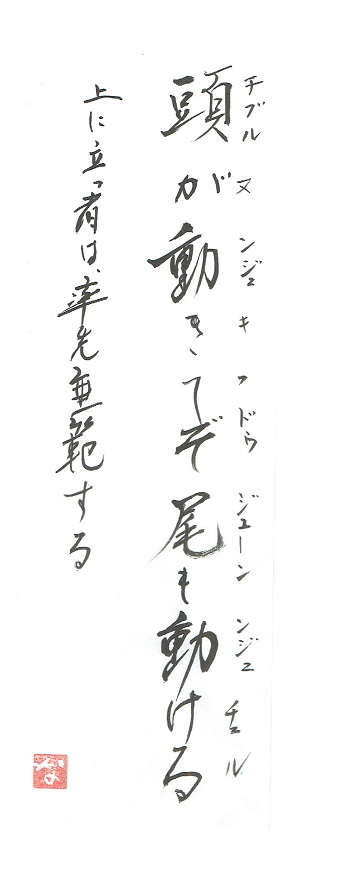 チブル ヌ ンジュ キ ワ ドゥ ジューン ンジュ チュル
頭が動きてぞ尾も動ける
上に立つ者は、率先垂範する